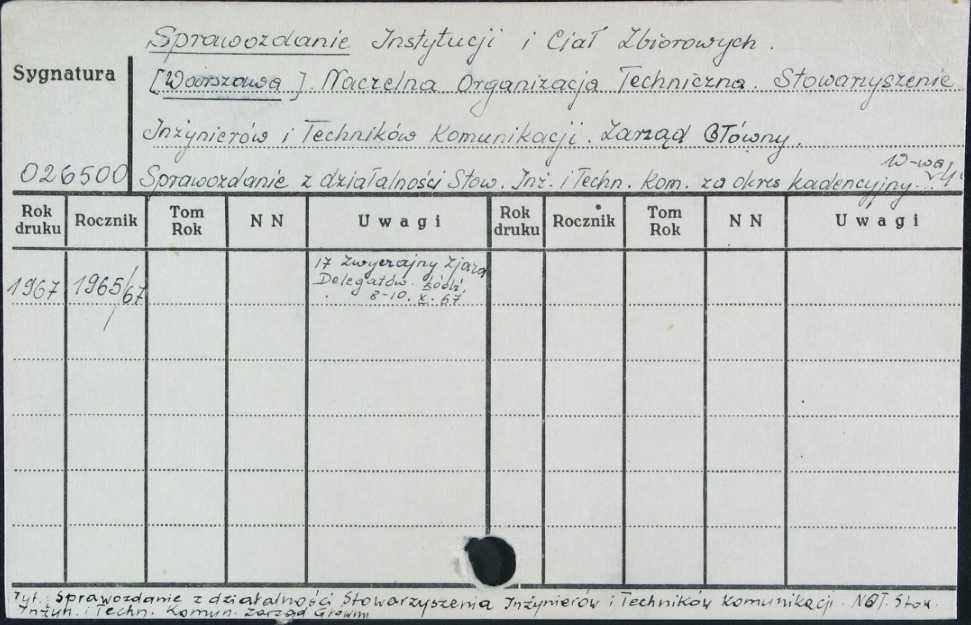 Sprawozdanie Instytucji i Ciał Zbiorowych.
Sygnatura
[Warszawa]. Naczelna Organizacja Techniczna. Stowarzyszenie
Inżynierów i Techników Komunikacji. Zarząd Główny.
W-wa
026500 Sprawozdanie z działalności Stow. Inż. i Techn. Kom. za okres kadencyjny...
Rok druku Rocznik Tom Rok N N Uwagi Rok druku Rocznik Tom Rok N N Uwagi
17 Zwyczajny Zjazd
1967 1965/67 Delegatów. Łódź,
8-10. X. 67
Tyt.: Sprawozdanie z działalności Stowarzyszenia Inżynierów i Techników Komunikacji. NOT. Stow.
Inżyn. i Techn. Komun. Zarząd Główny